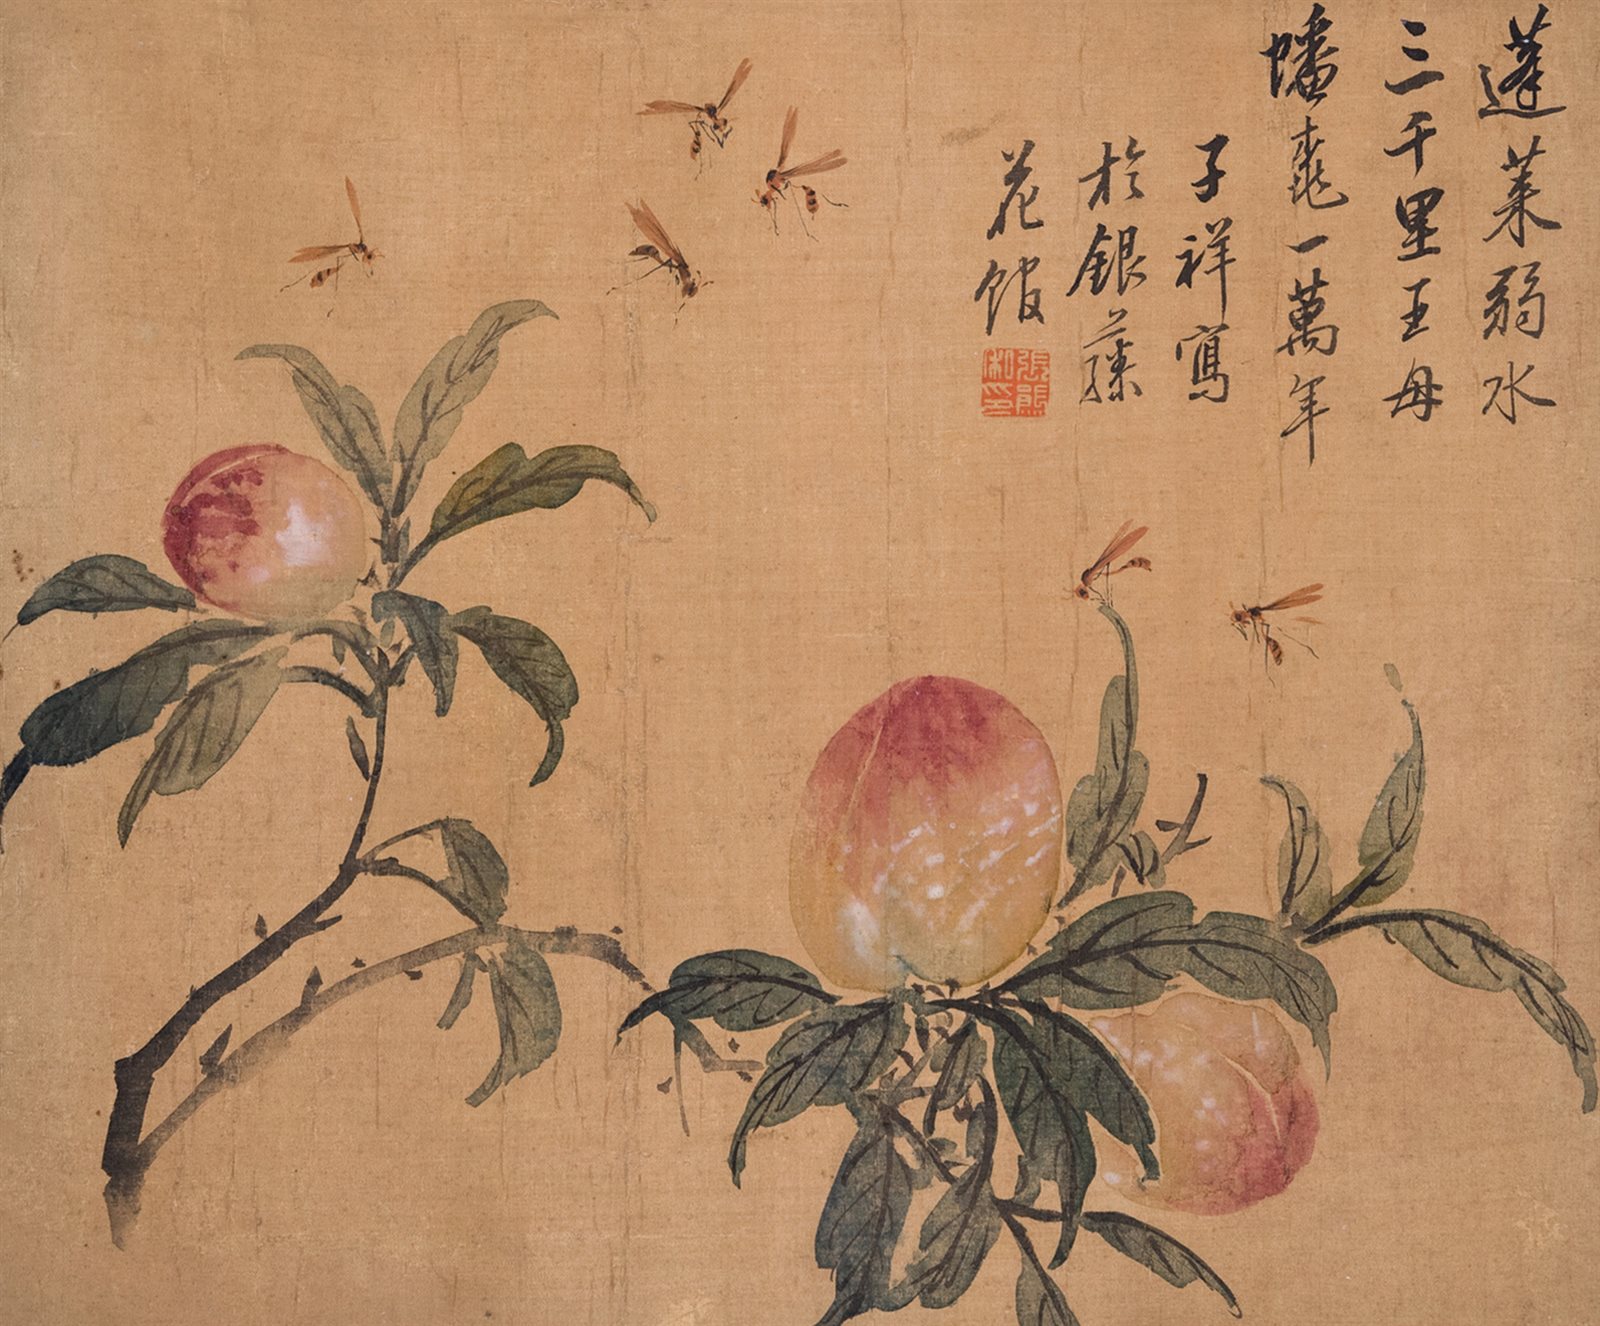 蓬萊弱水
三千里王母
蟠桃一萬年
子祥寫
於銀藤
花館
張熊
和印